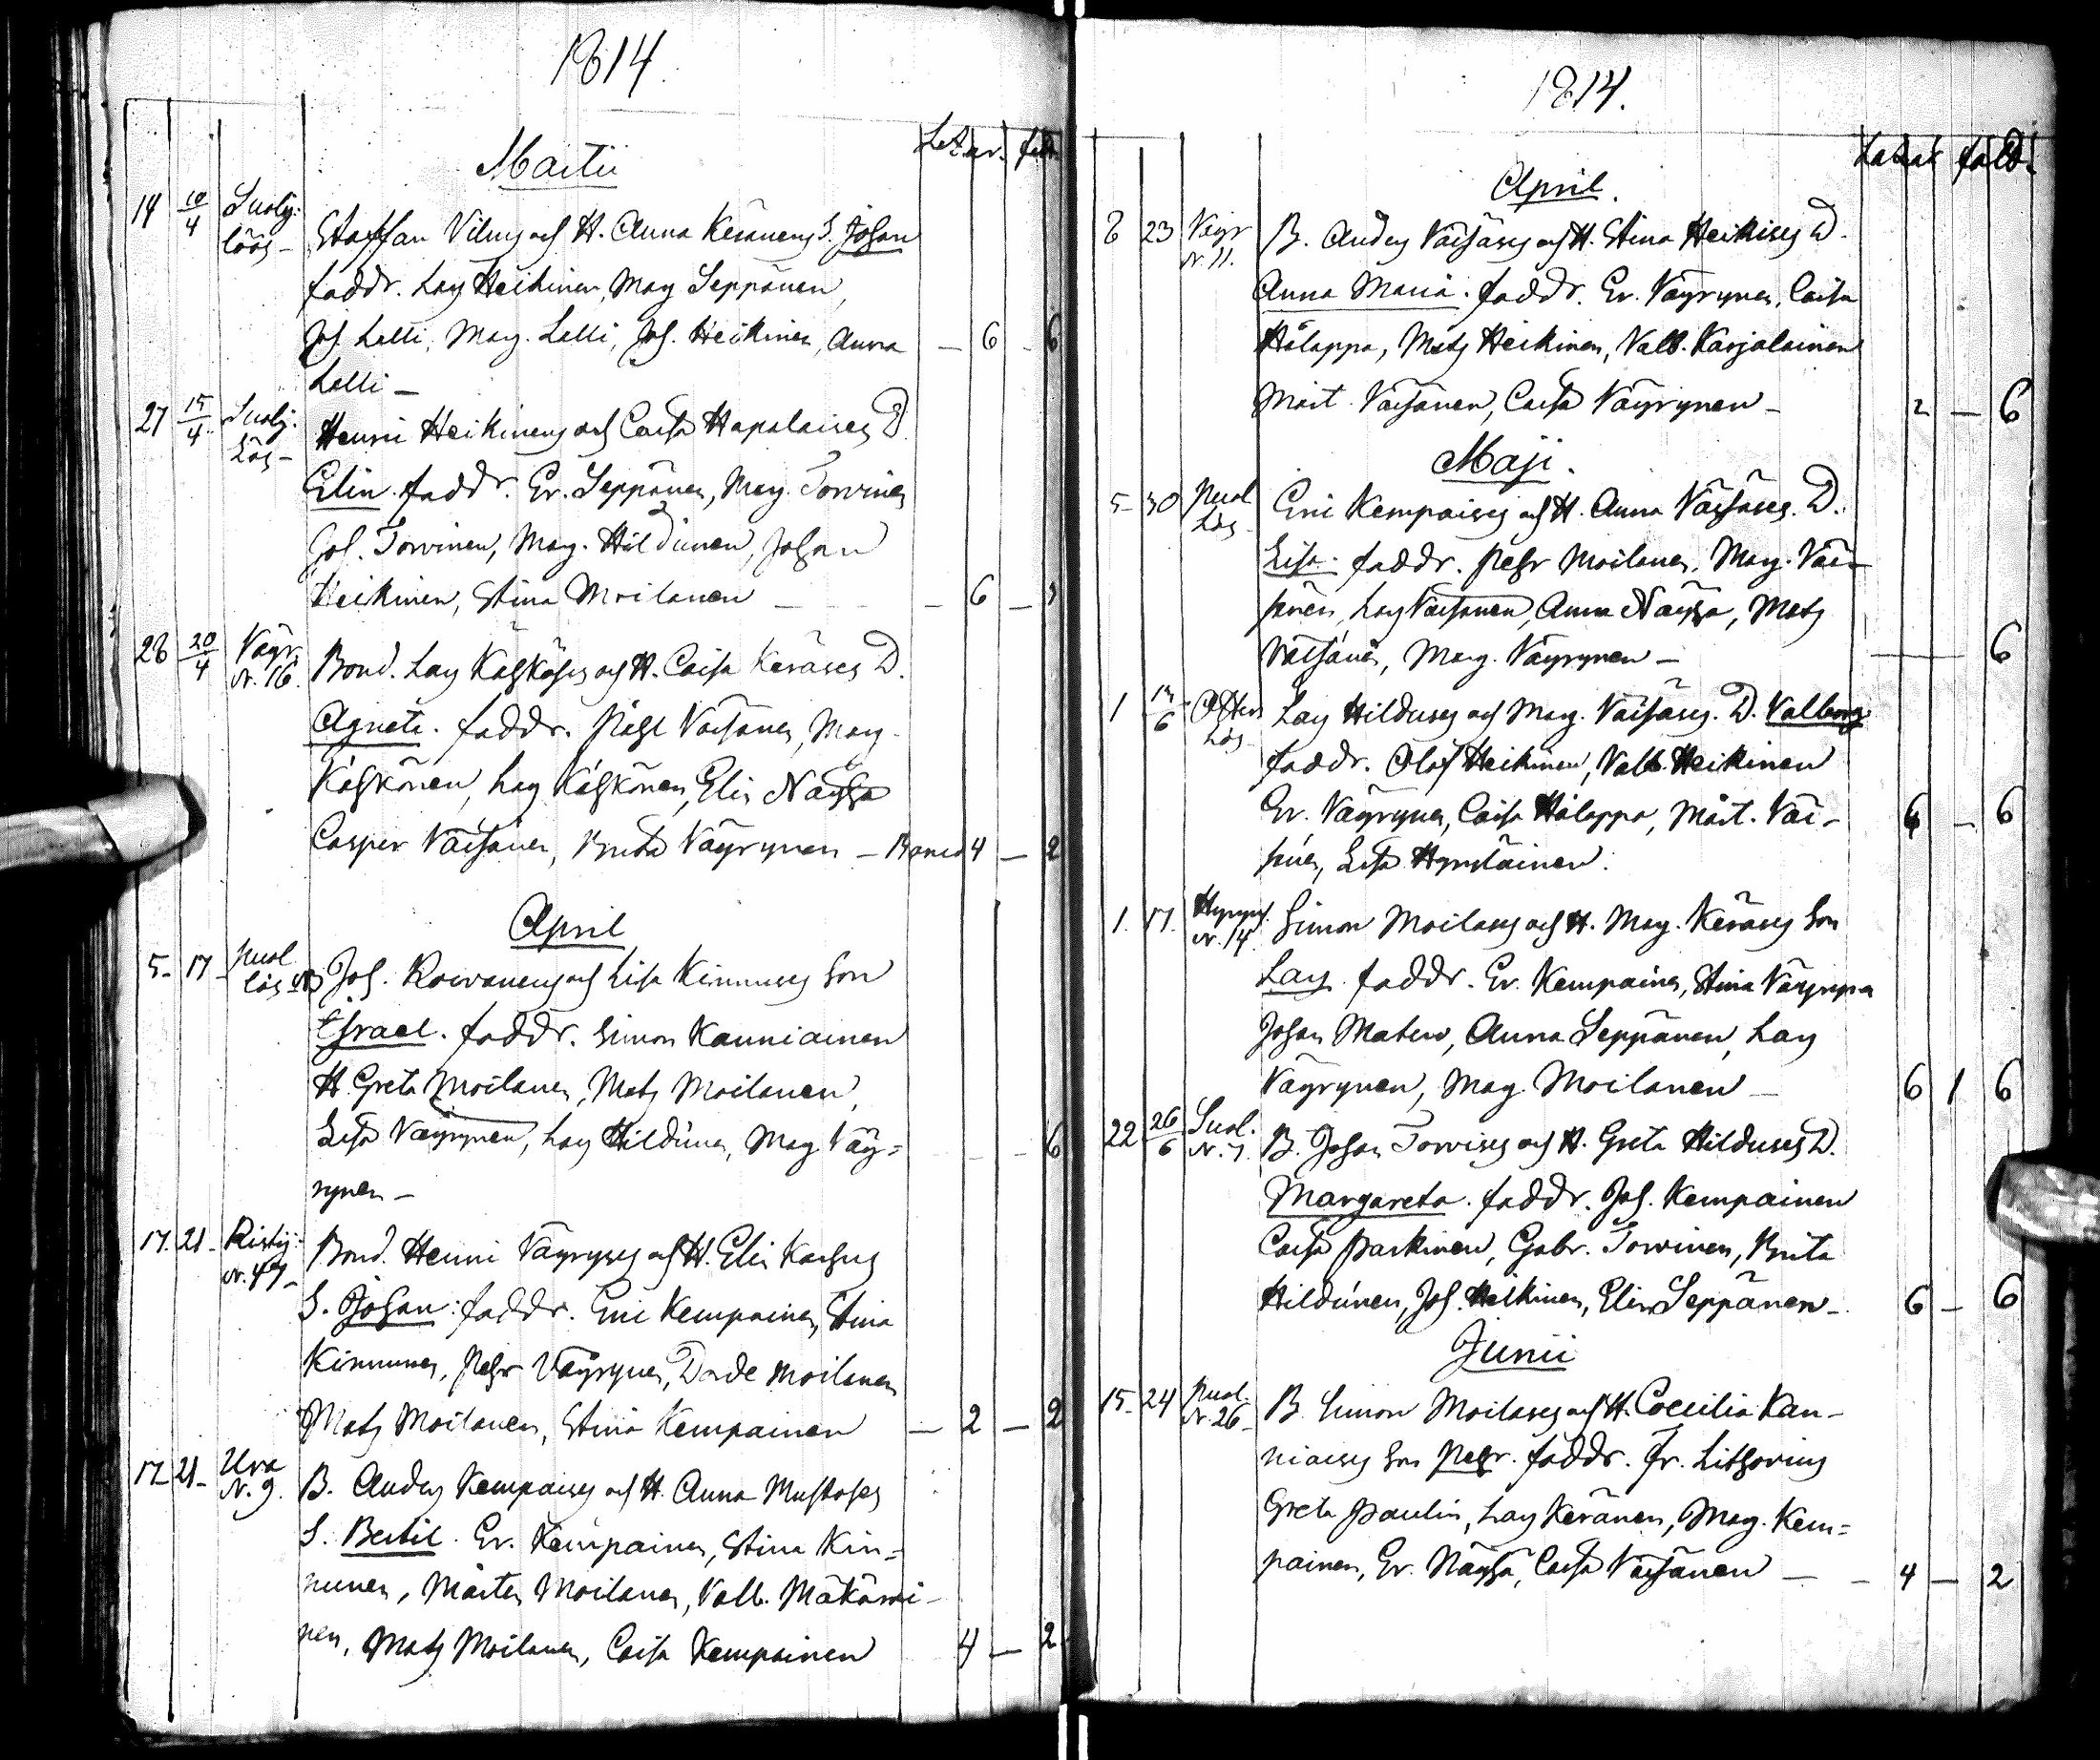 1814.
Martii
14 10/4 Suolij: Staffan Vilmj och H. Anna Keränens S. Johan
löös – faddr. Lars Heikinen, Marg Seppänen,
Joh Lelli, Marg. Lelli, Joh. Heikinen, Anna – 6 – 6
Lelli –
27 15/4 Suolj: Henric Heikinens och Caisa Hapalaines D.
Lös – Elin. faddr. Er. Seppänen, Marg. Torvinen
Joh. Torvinen, Marg. Hildunen, Johan
Heikinen, Stina Moilanen – – 6 –
28 20/4 Vägr. Bond. Lars Käskäses och H. Caisa Keräses D.
N. 16. Agneta. faddr. Pehr Väisänen, Marg
Käskönen, Lars Käskönen, Elin Näyhä
Casper Väisänen, Brita Väyrynen – 4 – 2
April
5 – 17 – Puol. Joh. Rowanens och Lisa Kinnuses Son
lös Esrael. faddr. Simon Kanniainen
H. Greta Moilanen, Mats Moilanen,
Lisa Väyrynen, Lars Hildunen, Marg Väy= 6
rynen –
17. 21 – Ristij: Bond. Henric Väyryses och H. Elin Karhus
N. 47 – S. Johan: faddr. Eric Kempainen, Stina
Kinnunen, Pehr Väyrynen, Dorde Moilanen
Mats Moilanen, Stina Kempainen – 2 – 2
17 21 – Urva B. Anders Kempaises och H. Anna Mustoses
N. 9. S. Bertil. Er. Kempainen, Stina Kin=
nunen, Mårten Moilanen, Valb. Mäkäräi-
nen, Mats Moilanen, Caisa Kempainen 4 – 2
1814.
April.
8 23 Vägr B. Anders Väisäses och H. Stina Heikises D.
N. 11. Anna Maria. faddr. Er. Väyrynen, Caisa
Hålappa, Mats Heikinen, Valb. Karjalainen
Mårt. Väisänen, Caisa Väyrynen – 2 – 6
Maji.
5 – 30 Puol Eric Kempaises och H. Anna Väisäses. D.
Lös Lisa. faddr. Pehr Moilanen. Marg. Väi-
sänen, Lars Väisänen, Anna Näyhä, Mats
Väisänen, Marg. Väyrynen – 6
1 /6 Lars Hilduses och Marg. Väisäses. D. Valborg
Lös faddr. Olof Heikinen, Valb. Heikinen
Er. Väyrynen, Caisa Hålappa, Mårt. Väi- 6 – 6
sänen, Lisa Hyryläinen.
1. 17. Hyryns. Simon Moilases och H. Marg. Keräses Son
N. 14 Lars. faddr. Er. Kempainen, Stina Väyrynen
Johan Matero, Anna Seppänen, Lars
Väyrynen, Marg Moilanen – 6 1 6
22 26/6 Suol. B. Johan Torvises och H. Greta Hilduses D.
N. 7. Margareta. faddr. Joh. Kempainen
Caisa Parkinen, Gabr. Torvinen, Brita
Hildunen, Joh. Heikinen, Elin Seppänen – 6 – 6
Junii
15 – 24 Puol. B. Simon Moilases och H. Coecilia Kan-
N. 26 – niaises Son Pehr. faddr. Fr. Lithovius
Greta Paulin, Lars Keränen, Marg. Kem=
painen, Er. Näyhä, Caisa Väisänen – – 4 – 2